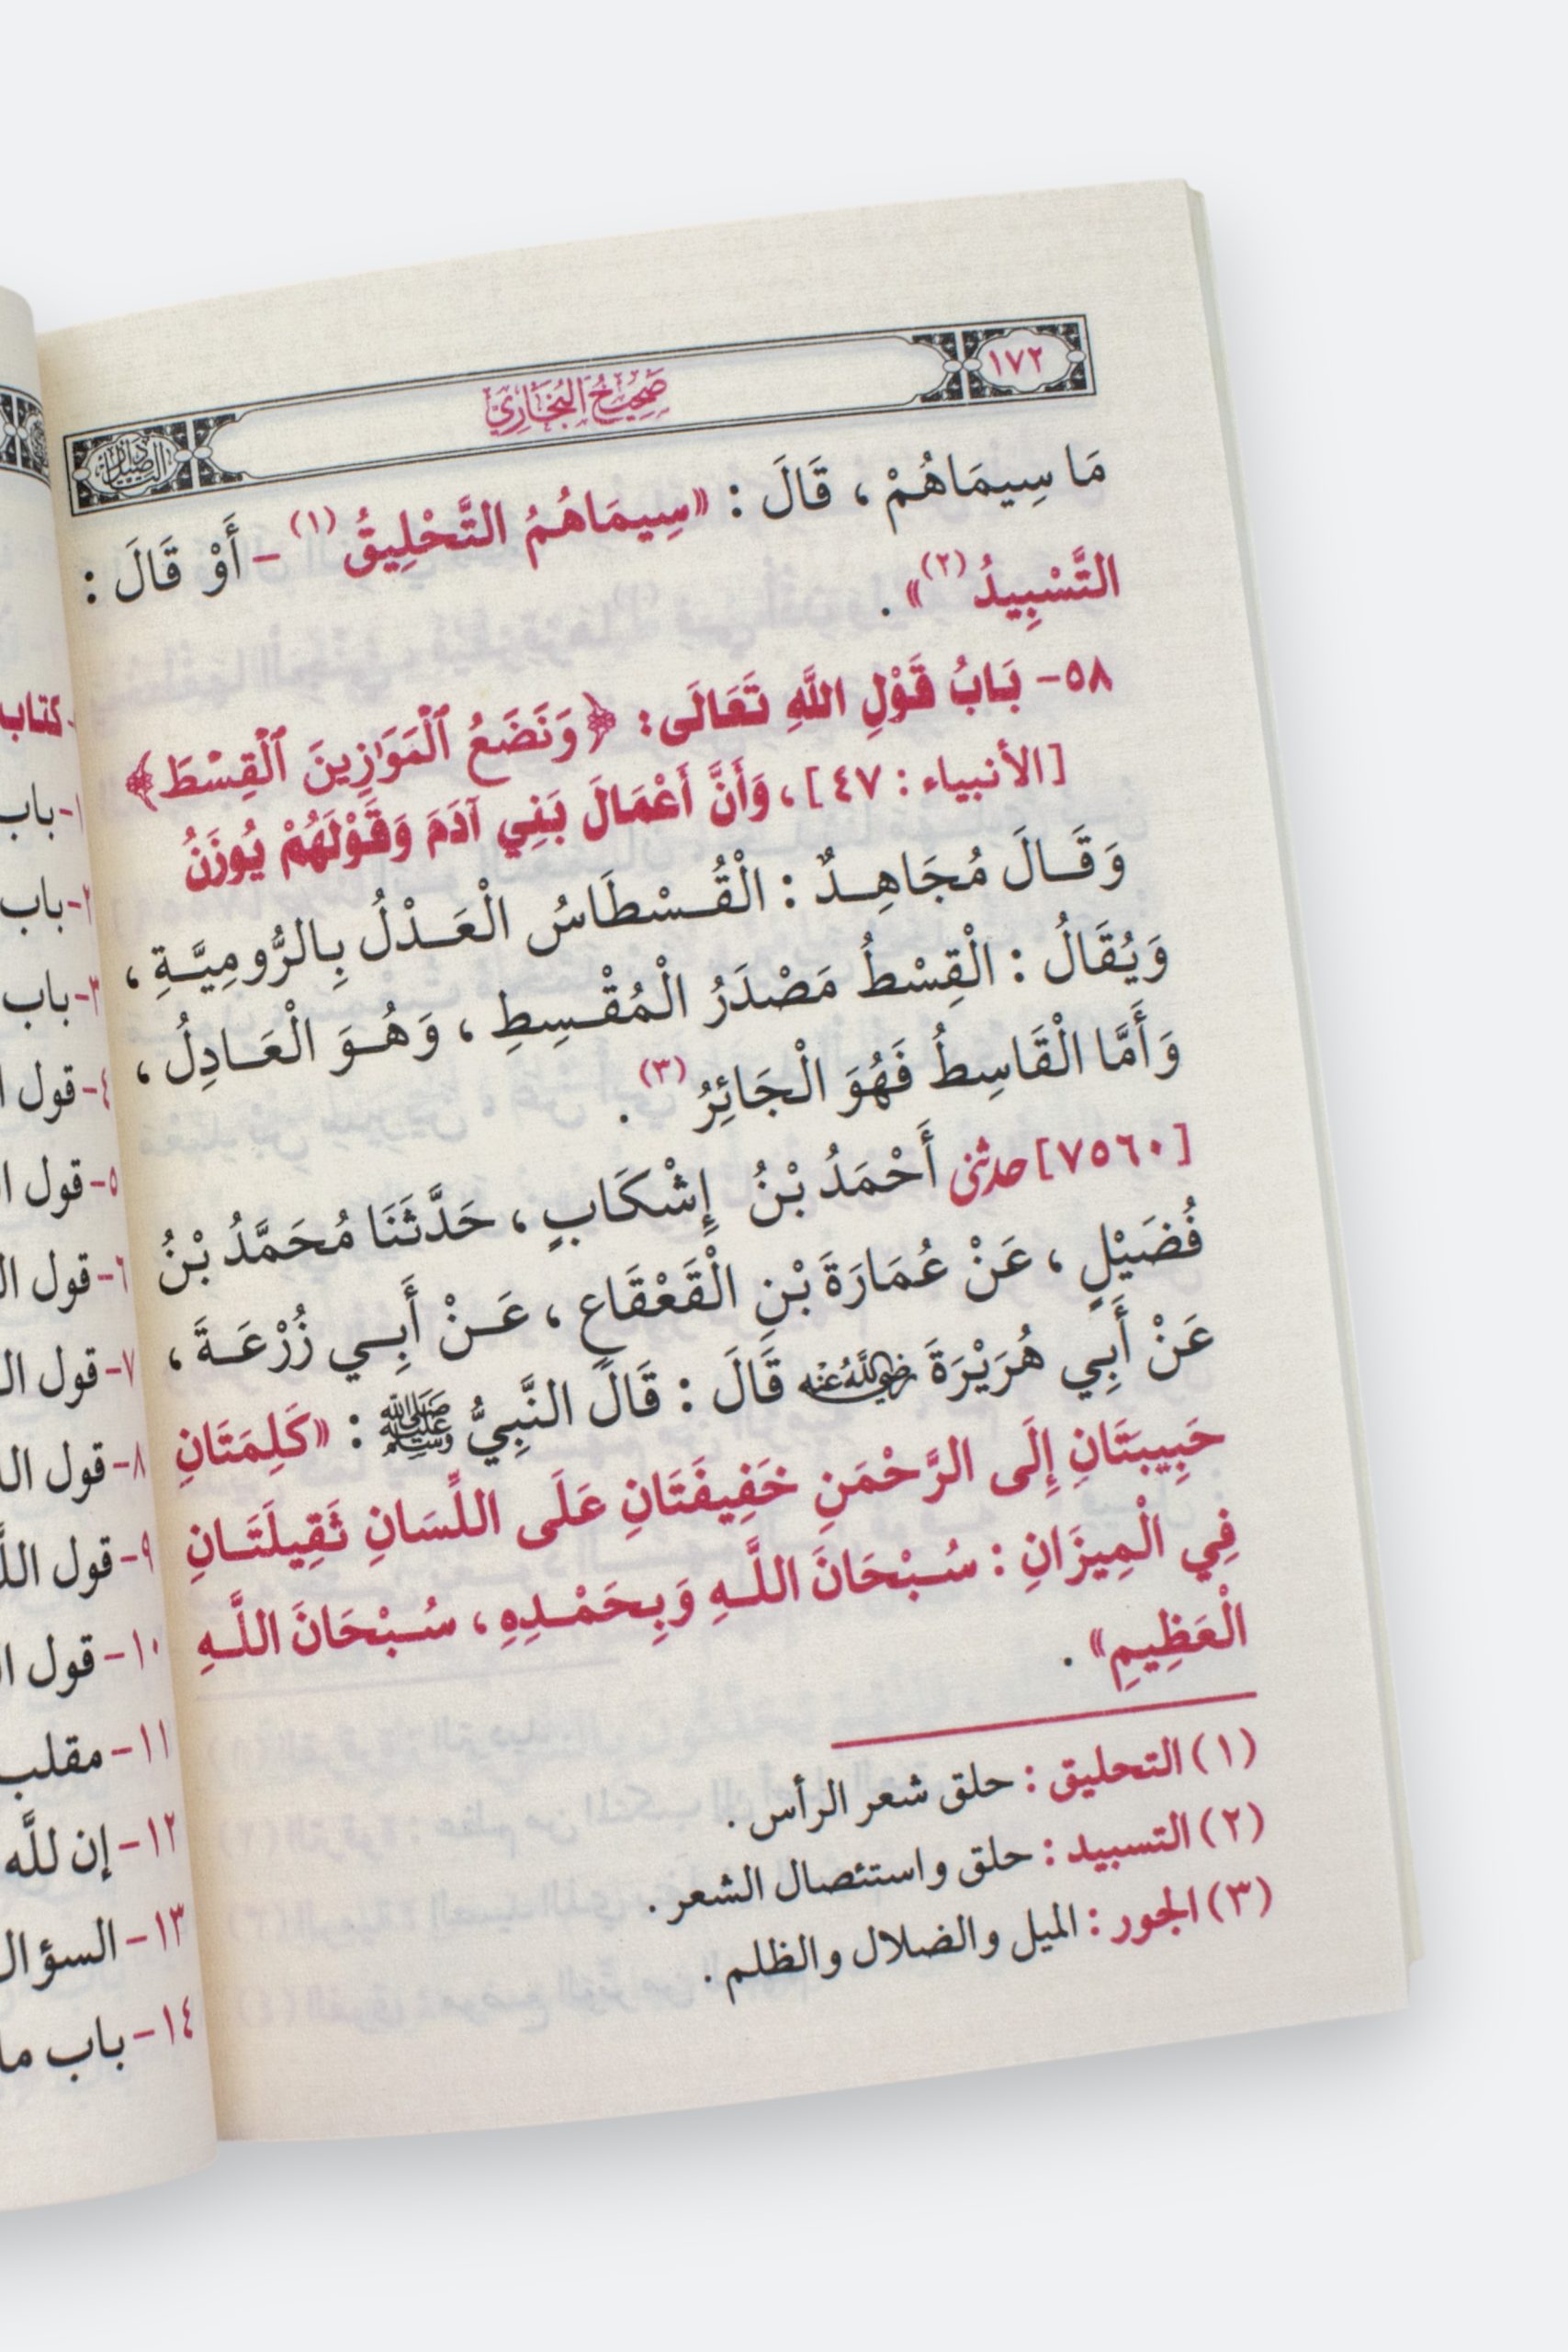 ١٧٢
صَحِيحُ البُخَارِيّ
مَا سِيمَاهُمْ ، قَالَ : «سِيمَاهُمُ التَّحْلِيقُ (١) - أَوْ قَالَ :
التَّسْبِيدُ (٢)» .
٥٨- بَابُ قَوْلِ اللَّهِ تَعَالَى: ﴿وَنَضَعُ ٱلْمَوَٰزِينَ ٱلْقِسْطَ﴾
[الأنبياء : ٤٧] ، وَأَنَّ أَعْمَالَ بَنِي آدَمَ وَقَوْلَهُمْ يُوزَنُ
وَقَالَ مُجَاهِدٌ : الْقُسْطَاسُ الْعَدْلُ بِالرُّومِيَّةِ ،
وَيُقَالُ : الْقِسْطُ مَصْدَرُ الْمُقْسِطِ ، وَهُوَ الْعَادِلُ ،
وَأَمَّا الْقَاسِطُ فَهُوَ الْجَائِرُ (٣) .
[٧٥٦٠] حدثنى أَحْمَدُ بْنُ إِشْكَابٍ ، حَدَّثَنَا مُحَمَّدُ بْنُ
فُضَيْلٍ ، عَنْ عُمَارَةَ بْنِ الْقَعْقَاعِ ، عَنْ أَبِي زُرْعَةَ ،
عَنْ أَبِي هُرَيْرَةَ رَضِيَ اللَّهُ عَنْهُ قَالَ : قَالَ النَّبِيُّ ﷺ : «كَلِمَتَانِ
حَبِيبَتَانِ إِلَى الرَّحْمَنِ خَفِيفَتَانِ عَلَى اللِّسَانِ ثَقِيلَتَانِ
فِي الْمِيزَانِ : سُبْحَانَ اللَّهِ وَبِحَمْدِهِ ، سُبْحَانَ اللَّهِ
الْعَظِيمِ» .
(١) التحليق : حلق شعر الرأس .
(٢) التسبيد : حلق واستئصال الشعر .
(٣) الجور : الميل والضلال والظلم .
كتاب
١- باب
٢- باب
٣- باب
٤- قول
٥- قول
٦- قول
٧- قول
٨- قول
٩- قول
١٠- قول
١١- مقلب
١٢- إن للَّه
١٣- السؤال
١٤- باب ما